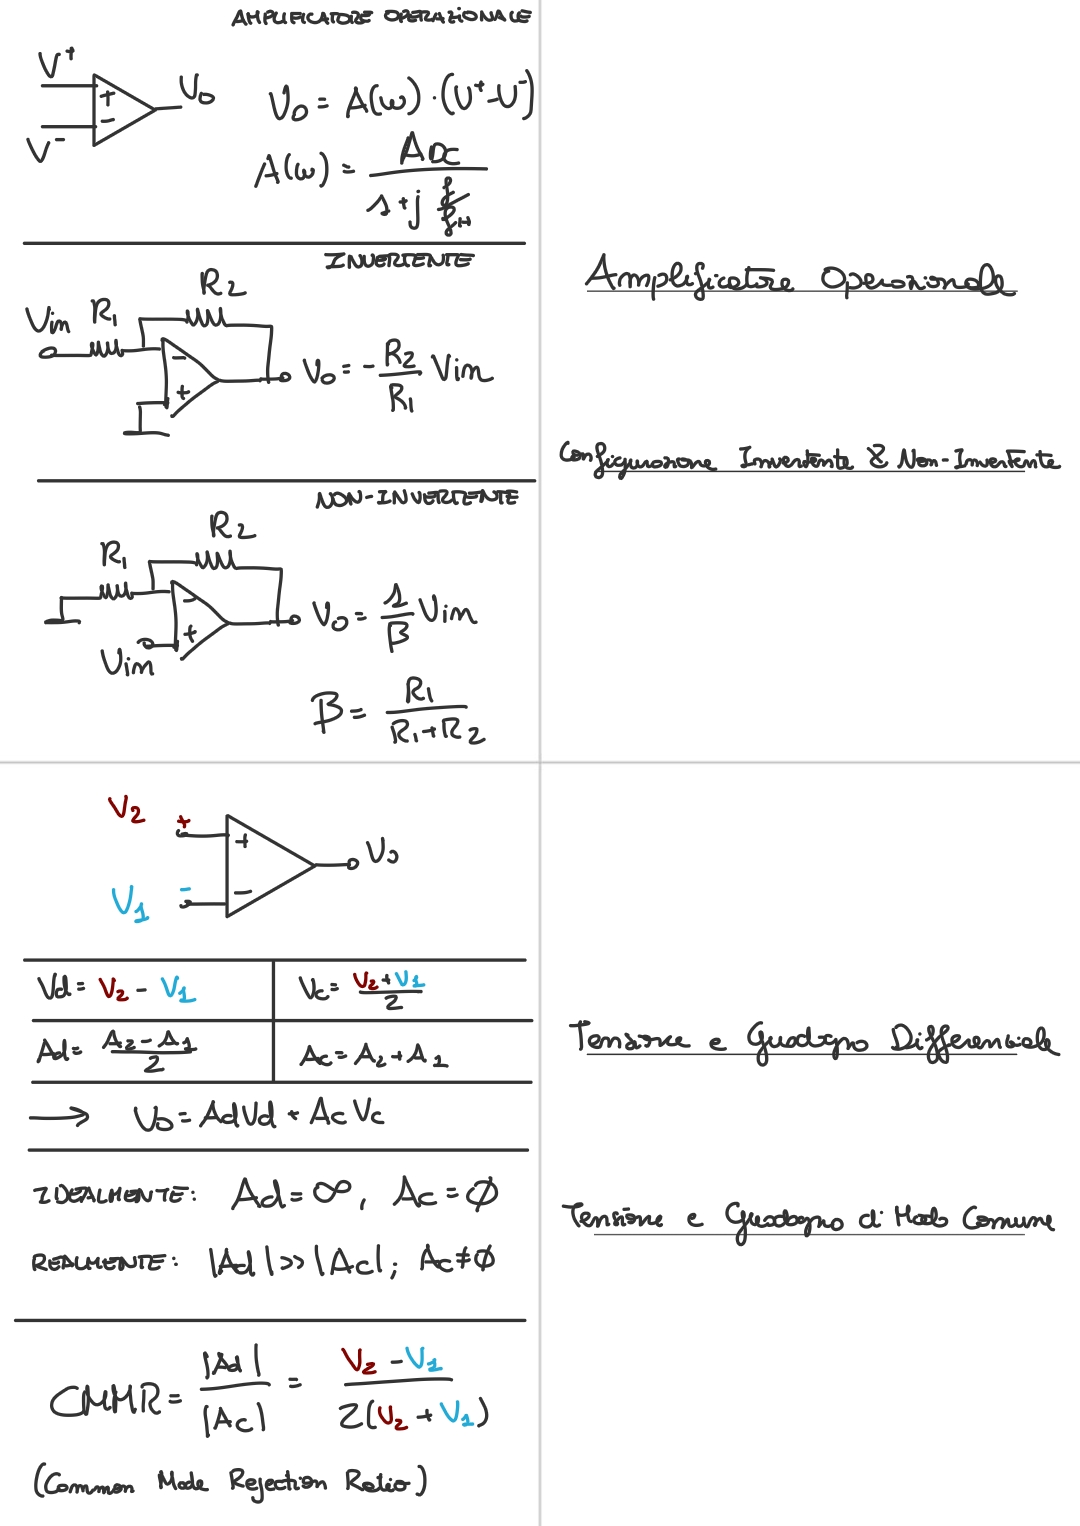 AMPLIFICATORE OPERAZIONALE
V+
V-
+
-
Vo
Vo = A(ω) · (V+ - V-)
A(ω) = ADC / (1 + j f/fH)
INVERTENTE
Vin
R1
R2
-
+
Vo = - R2/R1 Vin
NON-INVERTENTE
R1
R2
-
+
Vin
Vo = 1/β Vin
β = R1 / (R1 + R2)
Amplificatore Operazionale
Configurazione Invertente & Non-Invertente
V2 +
V1 -
+
-
Vo
Vd = V2 - V1
Vc = (V2 + V1) / 2
Ad = (A2 - A1) / 2
Ac = A2 + A1
→ Vo = AdVd + AcVc
IDEALMENTE: Ad = ∞, Ac = ∅
REALMENTE: |Ad| >> |Ac|; Ac ≠ ∅
CMMR = |Ad| / |Ac| = (V2 - V1) / 2(V2 + V1)
(Common Mode Rejection Ratio)
Tensione e Guadagno Differenziale
Tensione e Guadagno di Modo Comune